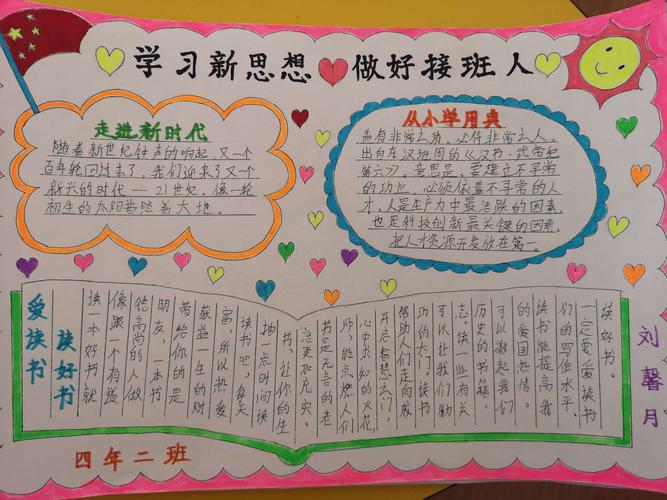 学习新思想 做好接班人
走进新时代
随着新世纪钟声的响起,又一个
百年轮回过去了,我们迎来了又一个
新兴的时代——21世纪,像一轮
初生的太阳普照着大地。
从小学用典
盖有非常之功,必待非常之人。
出自东汉班固的《汉书·武帝纪
第六》。意思是,要建立不寻常
的功业,必须依靠不寻常的人
才,人是生产力中最活跃的因素,
也是科技创新最关键的因素,
把人才资源开发放在第一
爱读书
读好书
读一本好书就
像跟一个有益
德高尚的人做
朋友,一本书
带给你的是
获益一生的财
富。所以热爱
读书吧,每天
抽一点时间读
书。让你的生
活更加充实。
书是无言的老
师,能点燃人们
心中求知的火花,
开启智慧之门,
帮助人们走向成
功的大门。读书
可以让我们励
志。读一些有关
历史的书籍,
可以激起我们
的爱国热情。
读书能提高我
们的写作水平。
一定要爱读书
读好书。
刘馨月
四年二班